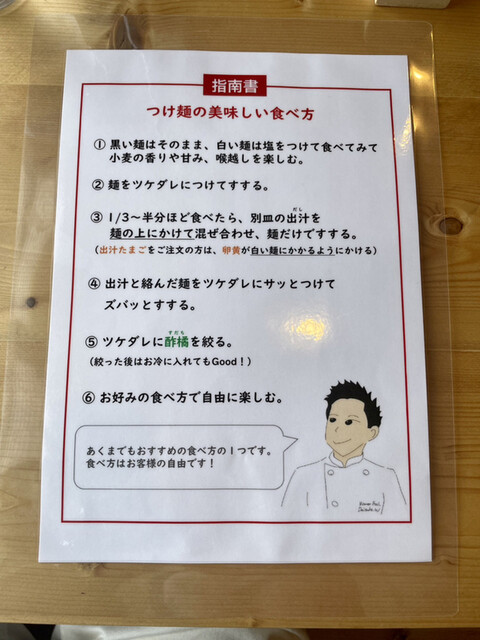 指南書
つけ麺の美味しい食べ方
① 黒い麺はそのまま、白い麺は塩をつけて食べてみて
小麦の香りや甘み、喉越しを楽しむ。
② 麺をツケダレにつけてすする。
③ 1/3〜半分ほど食べたら、別皿の出汁を
だし
麺の上にかけて混ぜ合わせ、麺だけですする。
(出汁たまごをご注文の方は、卵黄が白い麺にかかるようにかける)
④ 出汁と絡んだ麺をツケダレにサッとつけて
ズバッとすする。
すだち
⑤ ツケダレに酢橘を絞る。
(絞った後はお冷に入れてもGood！)
⑥ お好みの食べ方で自由に楽しむ。
あくまでもおすすめの食べ方の1つです。
食べ方はお客様の自由です！